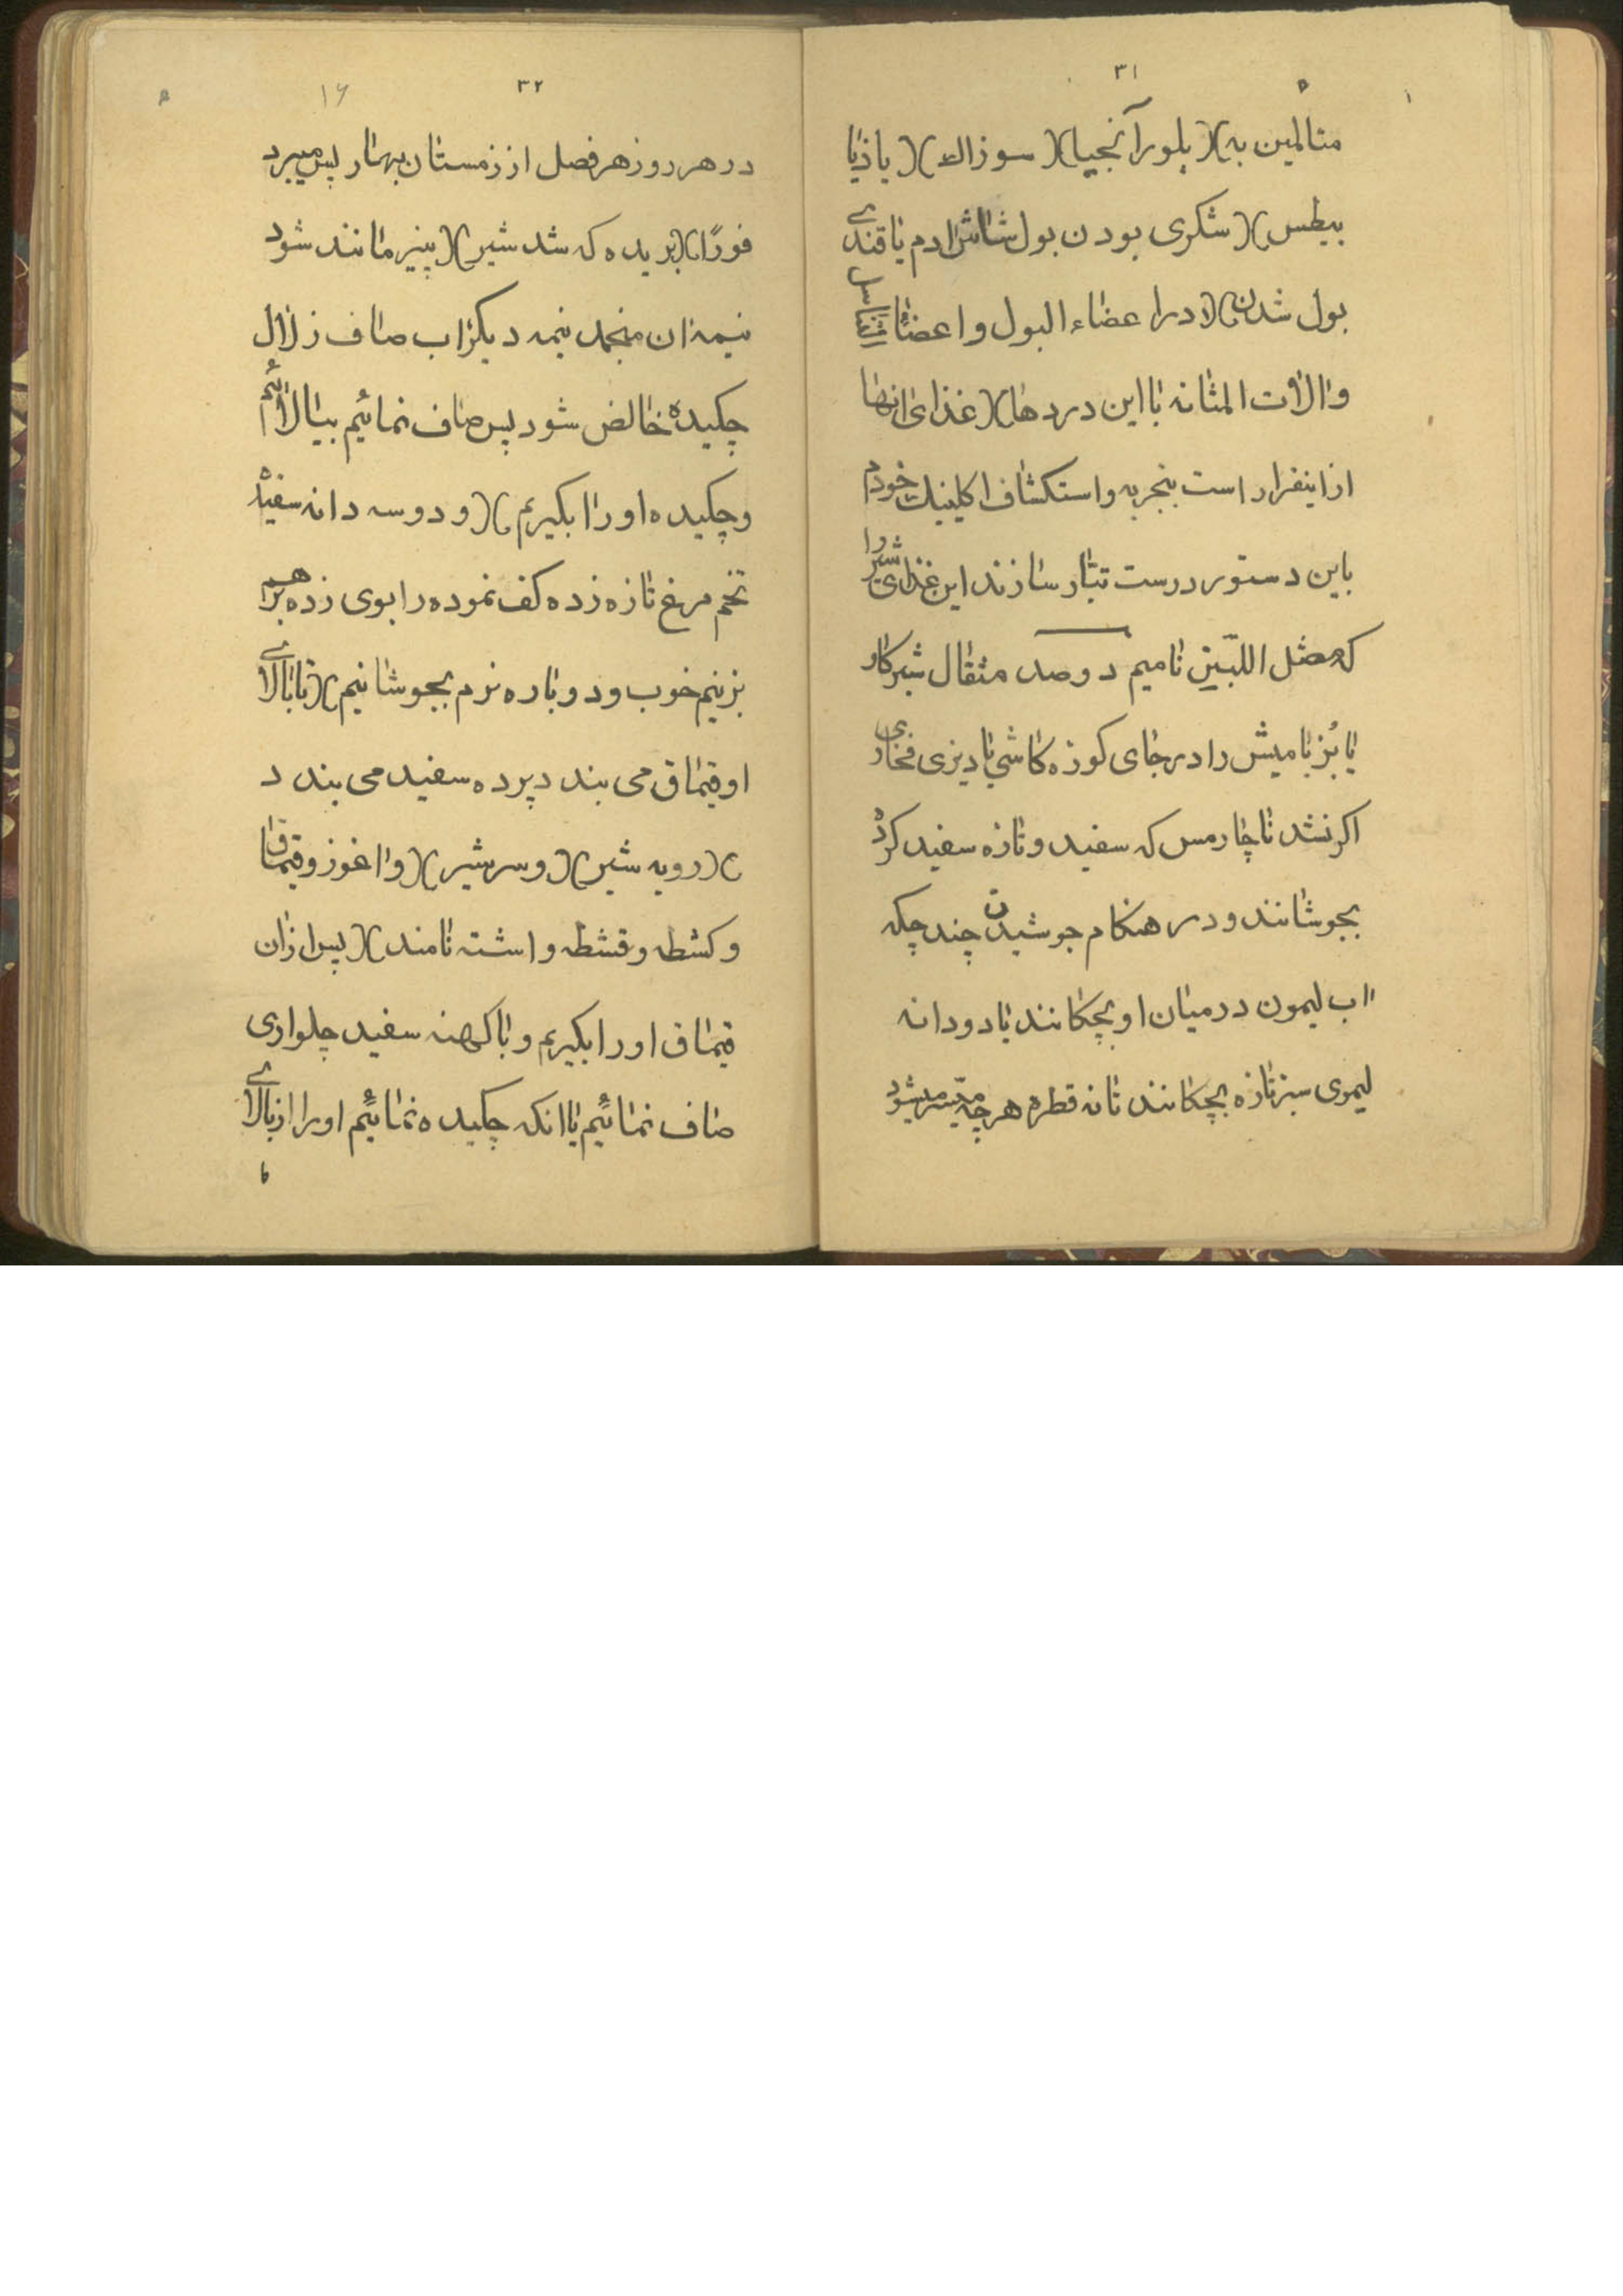 ۳۱
متالمین به)(بلورآنجیا)(سوزاك)(یاذیا
بیطس)(شکری بودن بول شاش ادم یا قندی
بول شدن)(در اعضاء البول و اعضاء تناسل
والات المثانه با این دردها)(غذای انها
ازاینقرار است بتجربه واستکشاف اکلینیك خودم
باین دستور درست تیار سازند این غذای شیر را
که مصل اللبین نامیم دوصد مثقال شیر کاو
یا بُز یا میش را در جای کوزه کاشی یا دیزی فخاری
اکر نشد ناچار مس که سفید و تازه سفید کرده
بجوشانند و در هنکام جوشیدن چند چکه
اب لیمون در میان او بچکانند یا دو دانه
لیموی سبز تازه بچکانند تا نه قطره هرچه میّسر میشود
۳۲
۱۶
در هر روز هر فصل از زمستان بهار پس میبرد
فورًا)(بریده که شد شیر)(پنیر مانند شود
نیمه ان منجمد نیمه دیکر اب صاف زلال
چکیده خالص شود پس صاف نمائیم بیالائیم
و چکیده او را بکیریم)(و دو سه دانه سفیده
تخم مرغ تازه زده کف نموده را بوی زده بر هم
بزنیم خوب و دوباره نرم بجوشانیم)(تا بالای
او قیماق می بندد پرده سفید می بندد
)(رویه شیر)(و سر شیر)(و اغوز و قیماق
و کشطه و قشطه و اشته نامند)(پس از ان
قیماق او را بکیریم و با کهنه سفید چلواری
صاف نمائیم یا انکه چکیده نمائیم او را از بالای